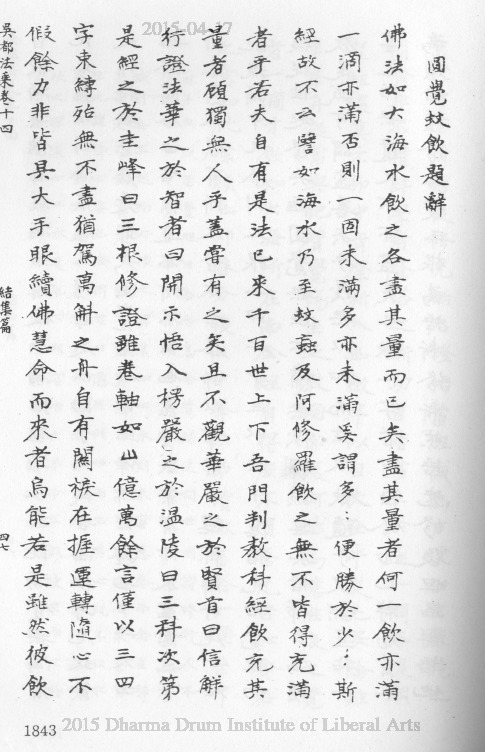 2015-04-17
圓覺蚊飲題辭
佛法如大海水飲之各盡其量而已矣盡其量者何一飲亦滿
一滴亦滿否則一固未滿多亦未滿奚謂多〻便勝於少〻斯
經故不云譬如海水乃至蚊蝱及阿修羅飲之無不皆得充滿
者乎若夫自有是法已來千百世上下吾門判教科經飲充其
量者碩獨無人乎蓋嘗有之矣且不觀華嚴之於賢首曰信解
行證法華之於智者曰開示悟入楞嚴之於温陵曰三科次第
是經之於圭峰曰三根修證雖卷軸如山億萬餘言僅以三四
字束縛殆無不盡猶駕萬斛之舟自有關棙在握運轉隨心不
假餘力非皆具大手眼續佛慧命而來者烏能若是雖然彼飲
吳都法乘卷十四
結集篇
四七
1843
2015 Dharma Drum Institute of Liberal Arts